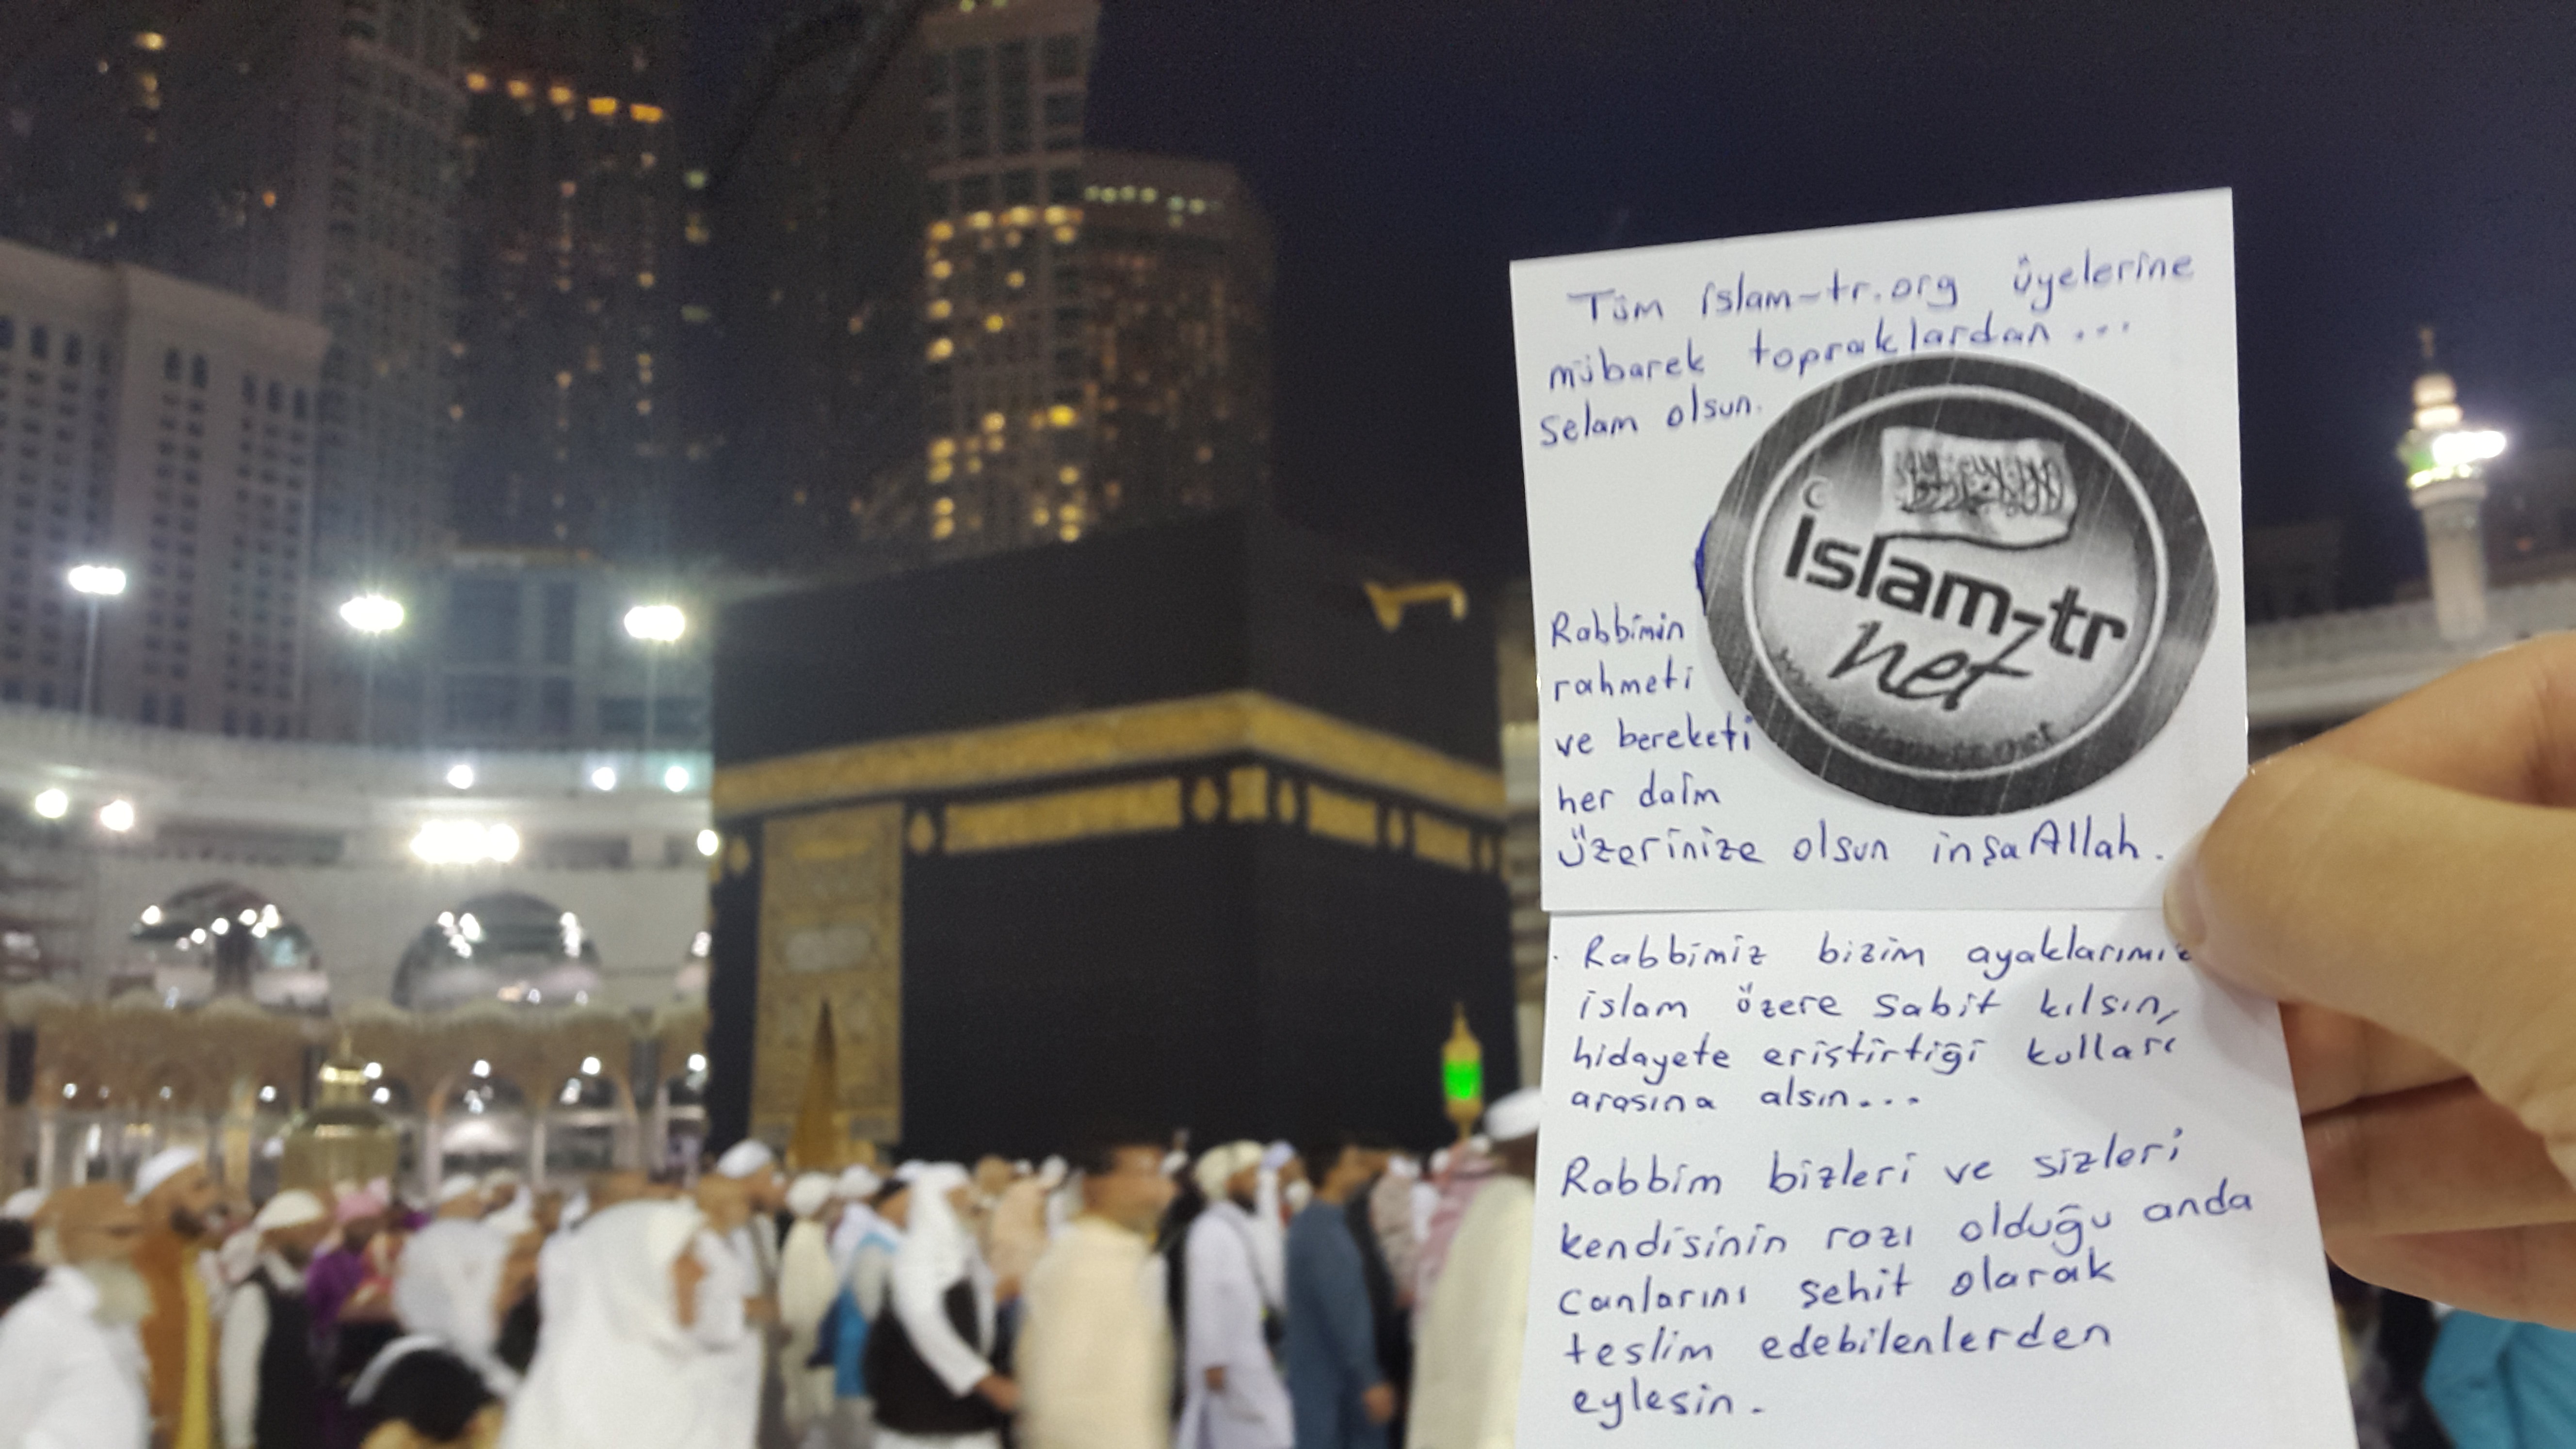 Tüm islam-tr.org üyelerine
mübarek topraklardan...
Selam olsun.
islam-tr
net
Rabbimin
rahmeti
ve bereketi
her daim
üzerinize olsun inşaAllah.
Rabbimiz bizim ayaklarımız
islam üzere sabit kılsın,
hidayete eriştirtiği kulları
arasına alsın...
Rabbim bizleri ve sizleri
kendisinin razı olduğu anda
canlarını şehit olarak
teslim edebilenlerden
eylesin.